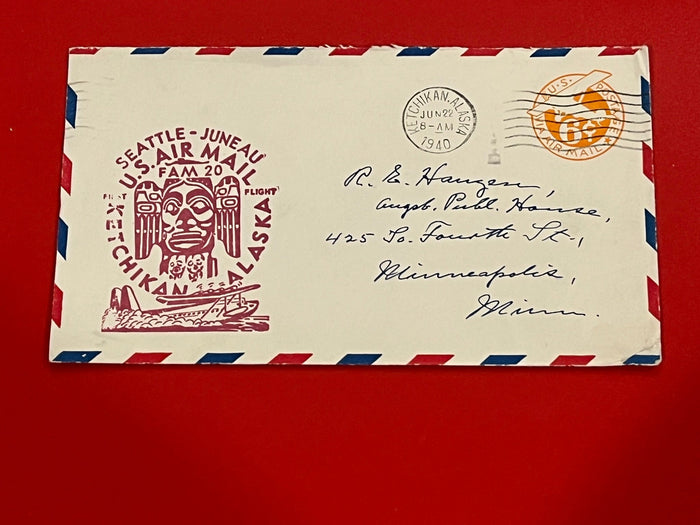 SEATTLE - JUNEAU
U.S. AIR MAIL
FAM 20
FIRST FLIGHT
KETCHIKAN ALASKA
KETCHIKAN, ALASKA
JUN 22
8 - AM
1940
U.S. POSTAGE
6¢
VIA AIR MAIL
R. E. Haugen,
Augsb. Publ. House,
425 So. Fourth St.,
Minneapolis,
Minn.